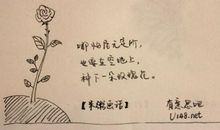 哪怕居无定所，
也要在空地上，
种下一朵玫瑰花。
【朱德庸语】
有意思吧
U148.net